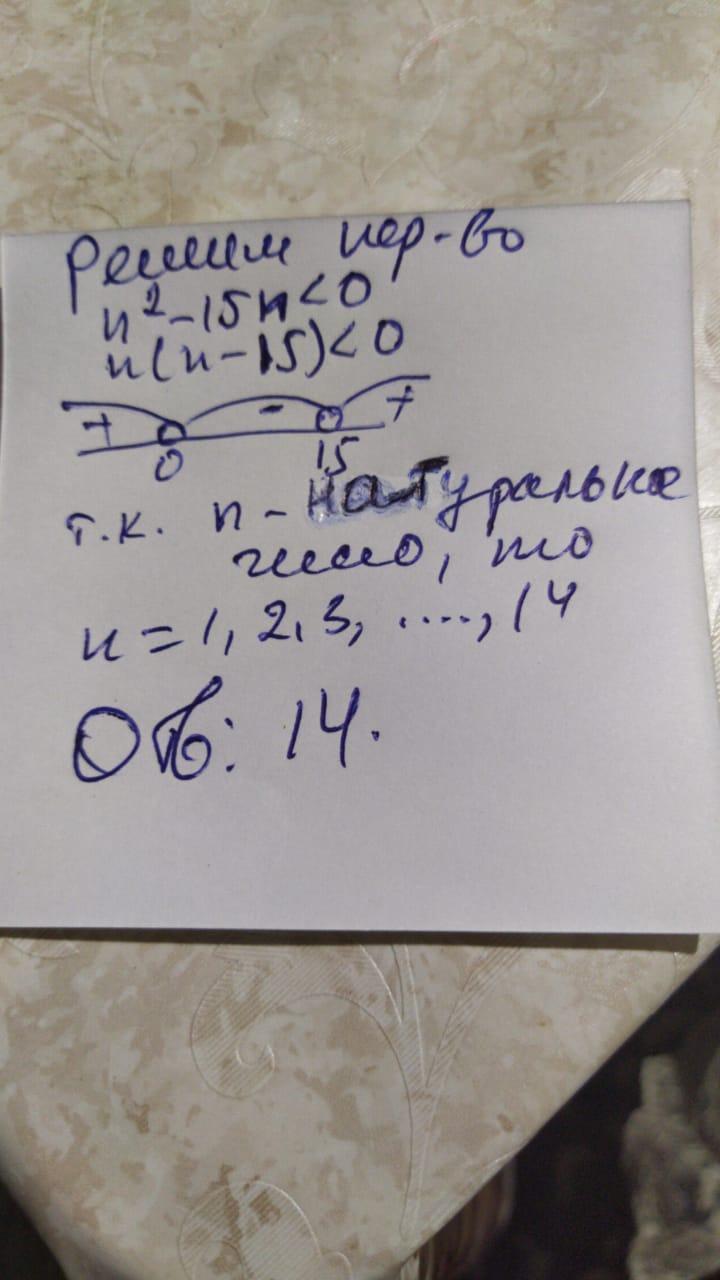 Решим нер-во
n²-15n<0
n(n-15)<0
+ - +
0 15
т.к. n - натуральное
число, то
n=1, 2, 3, ...., 14
Отв: 14.